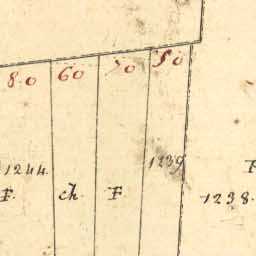 80 60 70 50
1244. 1239
F. ch F 1238.
F